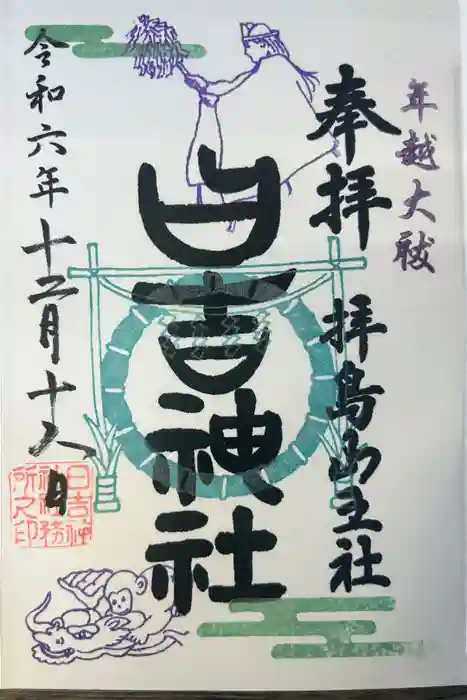 年越大祓
奉拝 拝島山王社
日吉神社
令和六年十二月十八日
日吉神
社社務
所之印